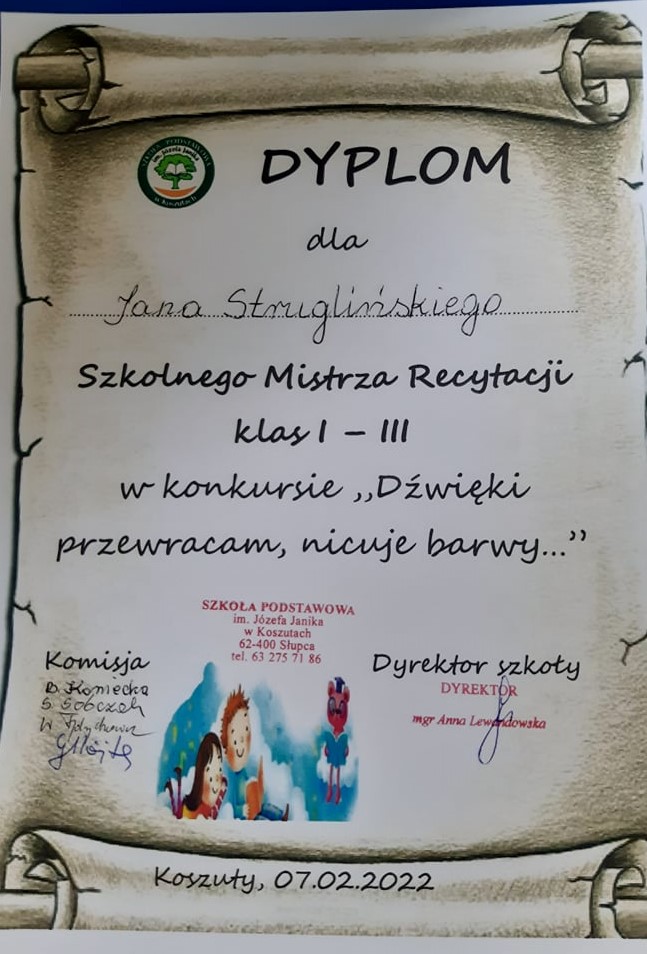 SZKOŁA PODSTAWOWA
im. Józefa Janika
w Koszutach
DYPLOM
dla
Jana Struglińskiego
Szkolnego Mistrza Recytacji
klas I – III
w konkursie ,,Dźwięki
przewracam, nicuje barwy...”
SZKOŁA PODSTAWOWA
im. Józefa Janika
w Koszutach
62-400 Słupca
tel. 63 275 71 86
Komisja
B. Koniecka
S. Sobczak
W.
Dyrektor szkoły
DYREKTOR
mgr Anna Lewandowska
Koszuty, 07.02.2022